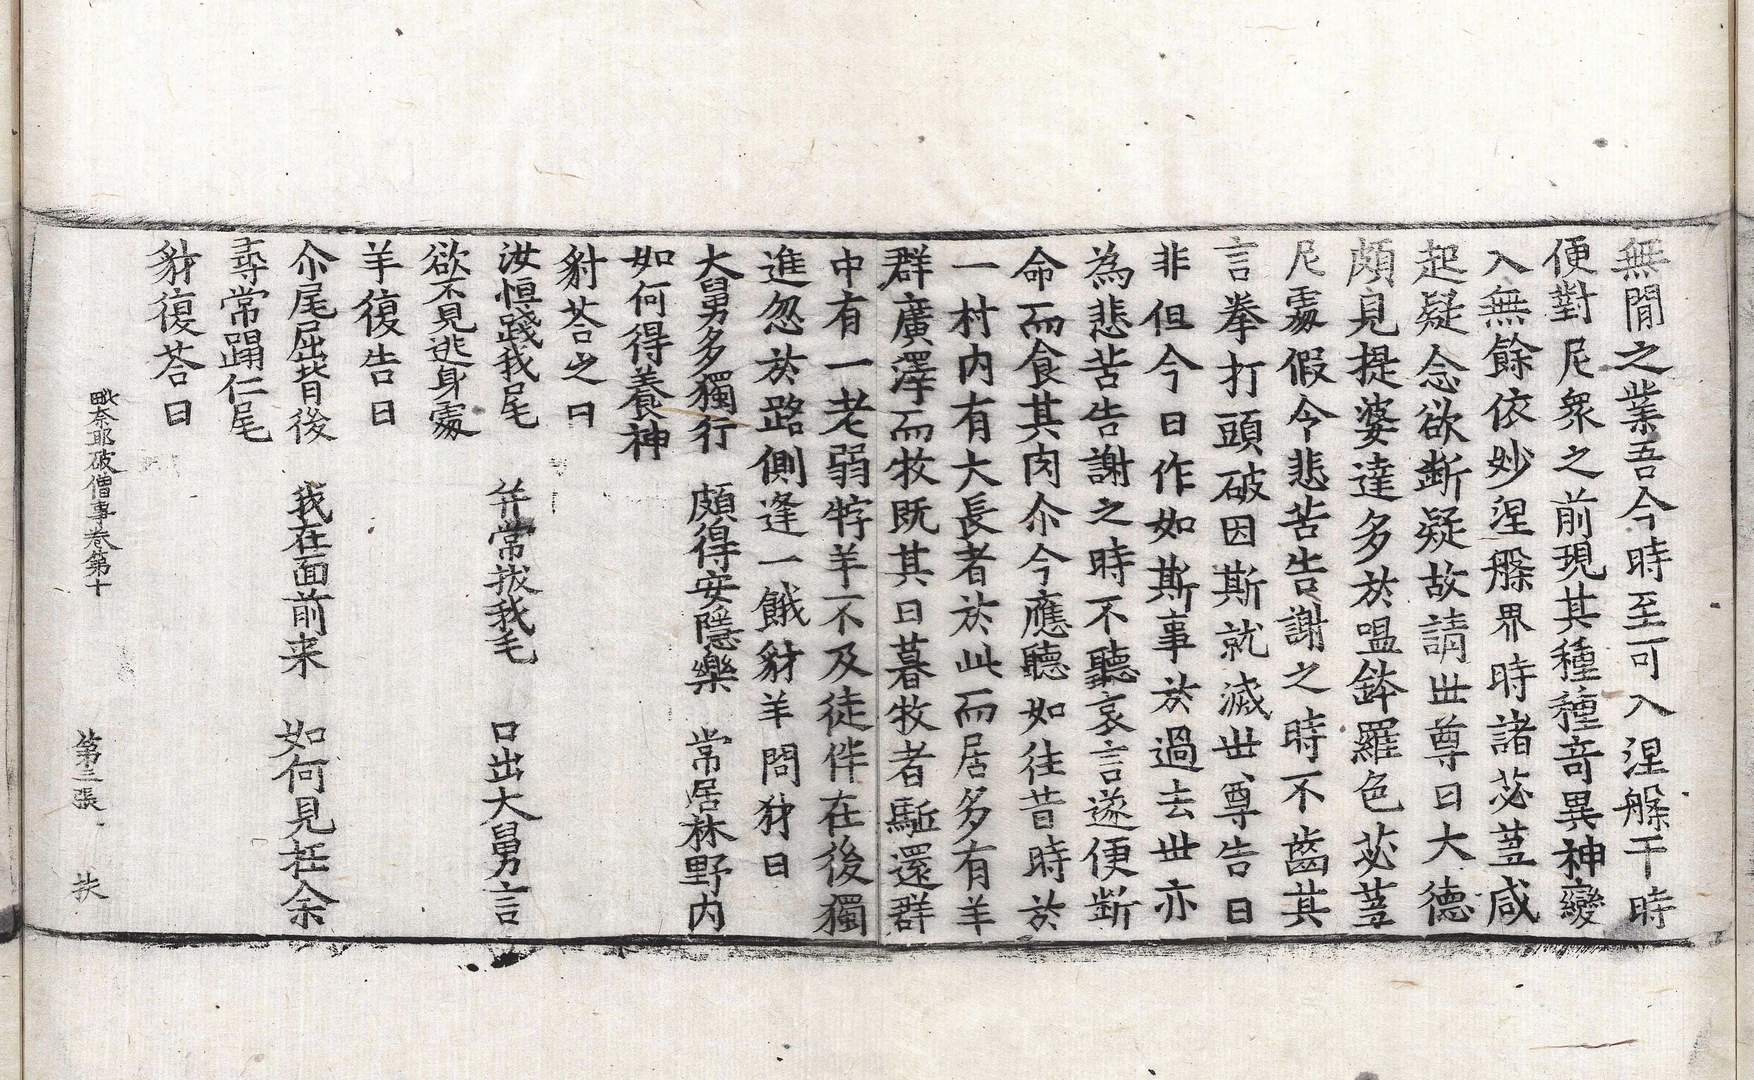 無閒之業吾今時至可入涅槃于時
便對尼衆之前現其種種奇異神變
入無餘依妙涅槃界時諸苾蒭咸
起疑念欲斷疑故請世尊曰大德
頗見提婆達多於嗢鉢羅色苾蒭
尼處假令悲苦告謝之時不齒其
言拳打頭破因斯就滅世尊告曰
非但今日作如斯事於過去世亦
為悲苦告謝之時不聽哀言遂便斷
命而食其肉尒今應聽如往昔時於
一村内有大長者於此而居多有羊
群廣澤而牧既其日暮牧者駈還群
中有一老弱牸羊不及徒伴在後獨
進忽於路側逢一餓豺羊問豺曰
大舅多獨行　頗得安隱樂　常居林野内
如何得養神
豺荅之曰
汝恒踐我尾　并常拔我毛　口出大舅言
欲不見逃身處
羊復告曰
尒尾屈背後　我在面前来　如何見枉余
尋常踊仁尾
豺復荅曰
毗奈耶破僧事卷第十　第三張　扶